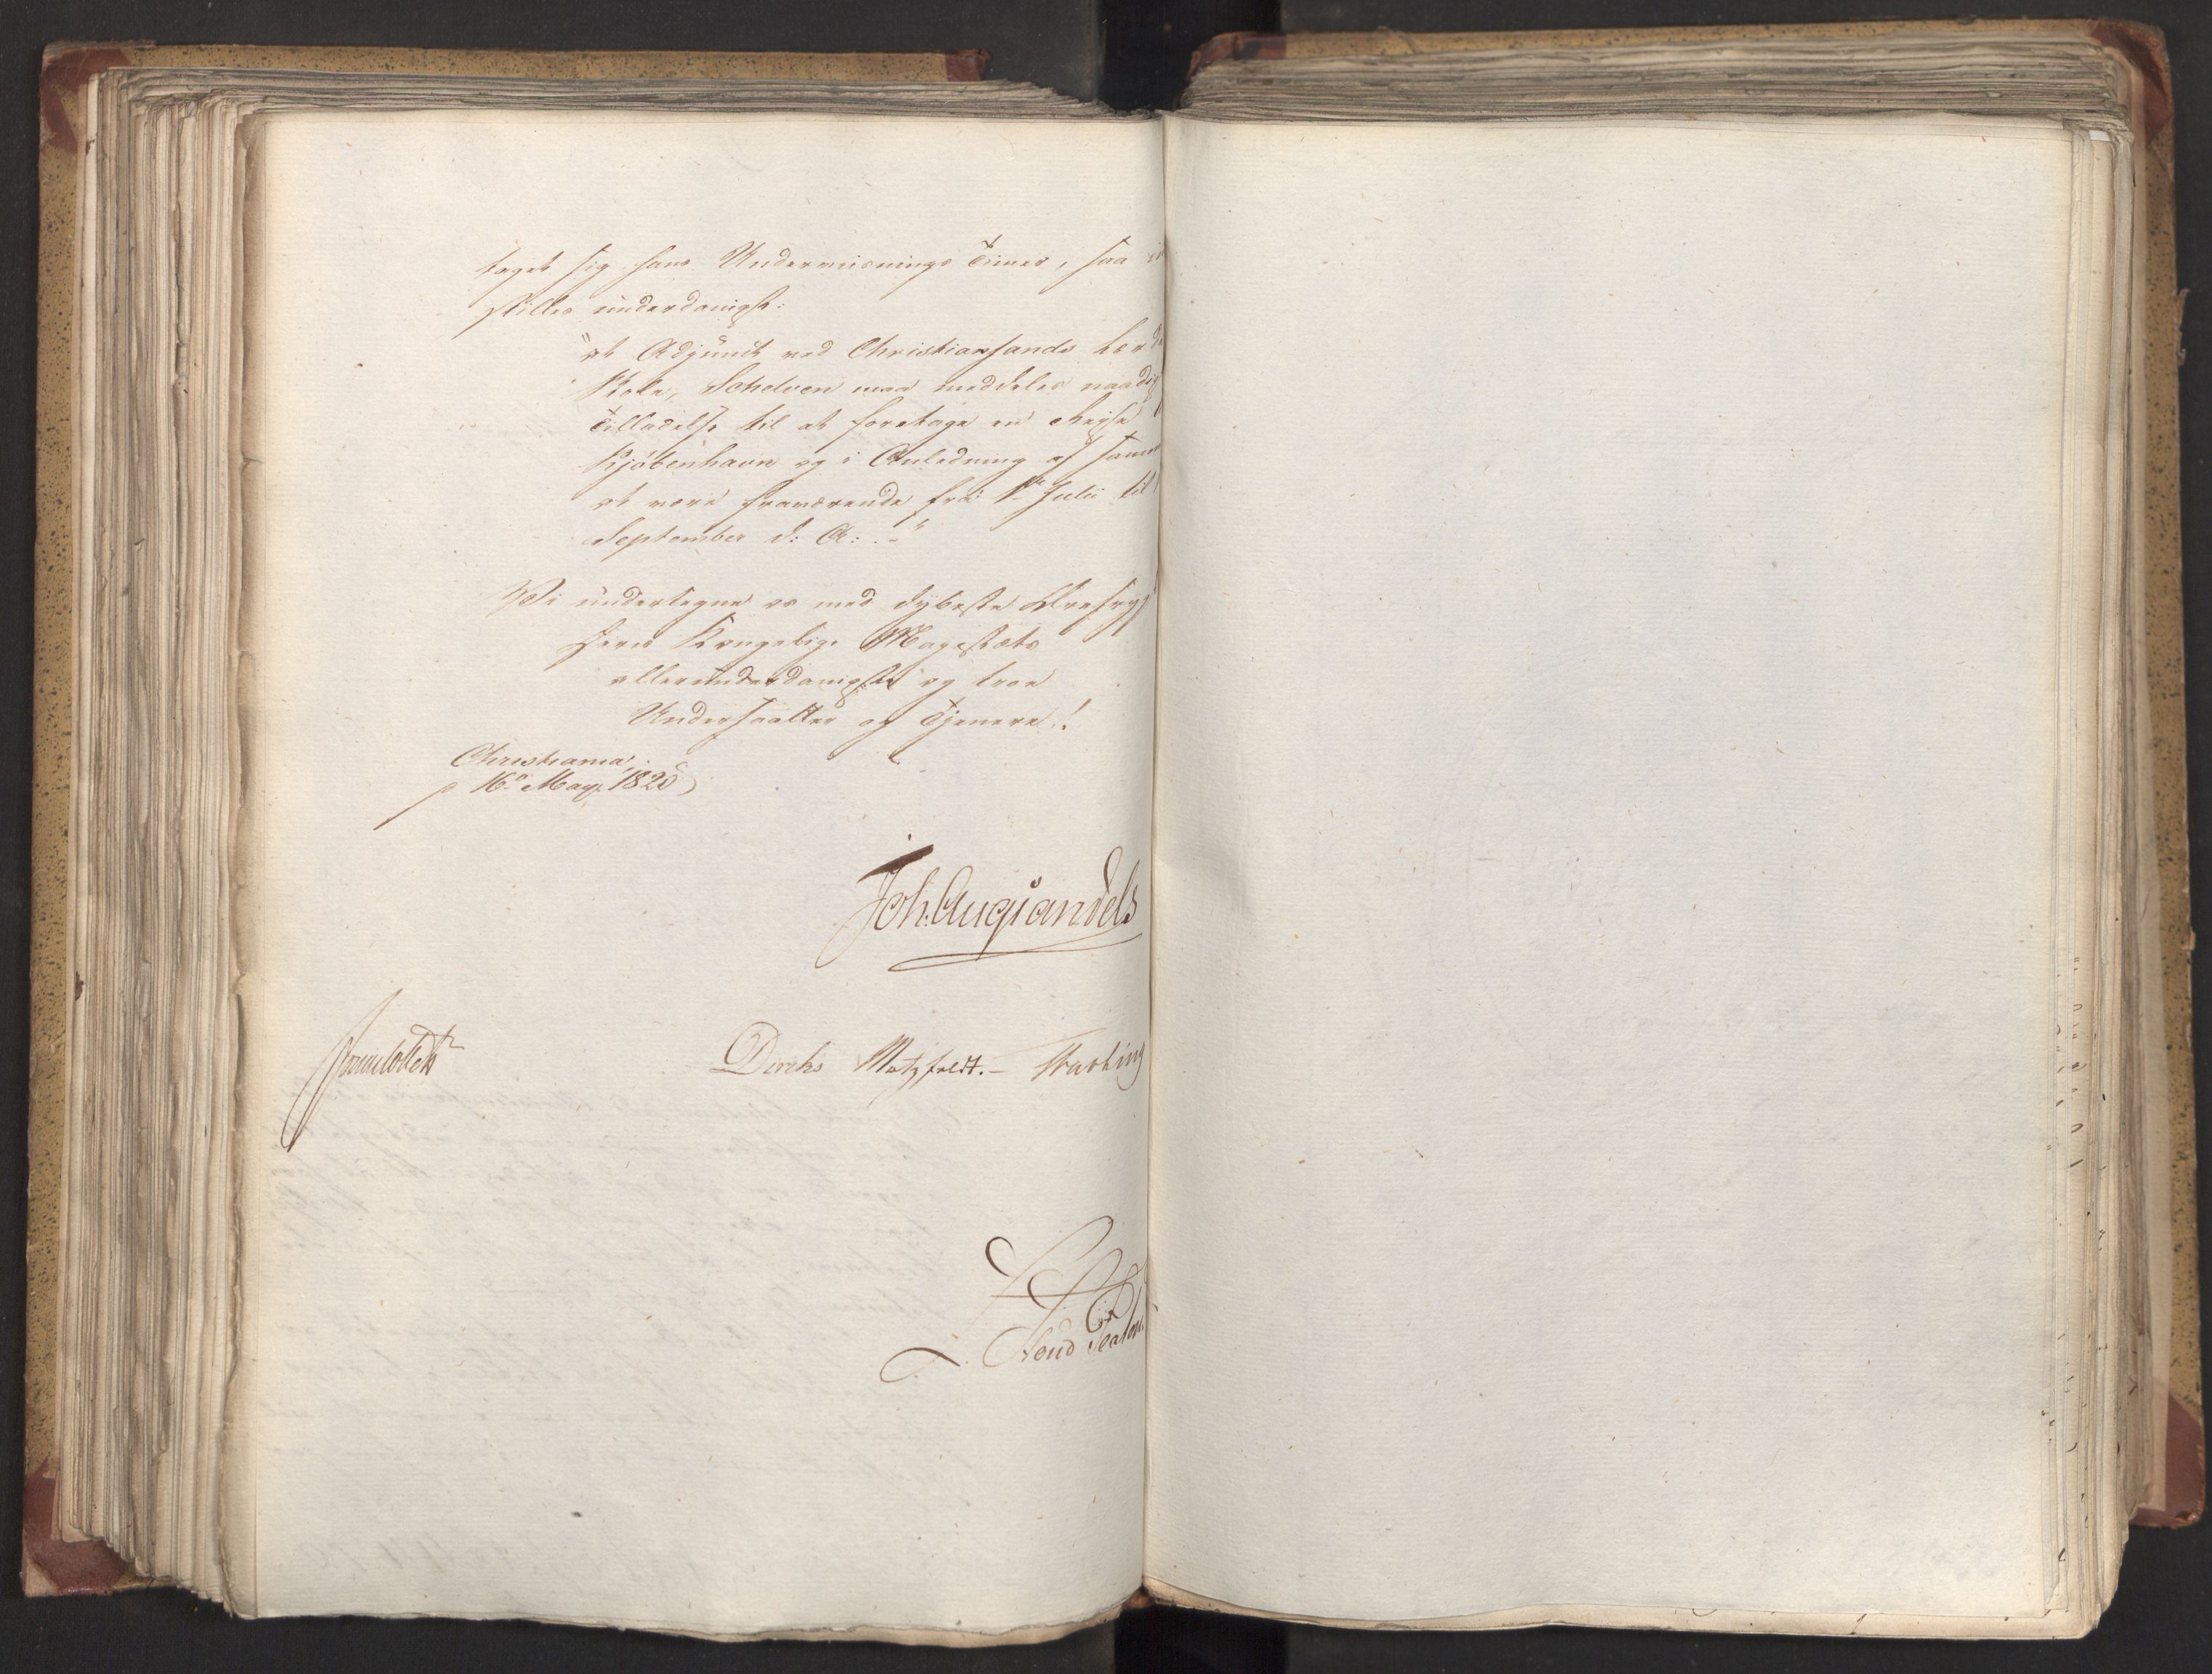 taget sig hans Underviisnings Timer, saa
stilles underdanigst:
"at Adjunct ved Christiansands Lærde
Skole, Schelven maa meddeles naadig
Tilladelse til at foretage en Reyse
Kjöbenhavn og i Anledning af samme
at være fraværende fra 1ste Julii til
September d: A: .-"
Vi undertegne os med dybeste Ærefrygt
Deres Kongelige Majestæts
allerunderdanigste og troe
Undersaatter og Tjenere!
Christiania,
16de May 1820
Joh: Aug: Sandels
Sommerhielm
Diriks Motzfeldt. - Krebting